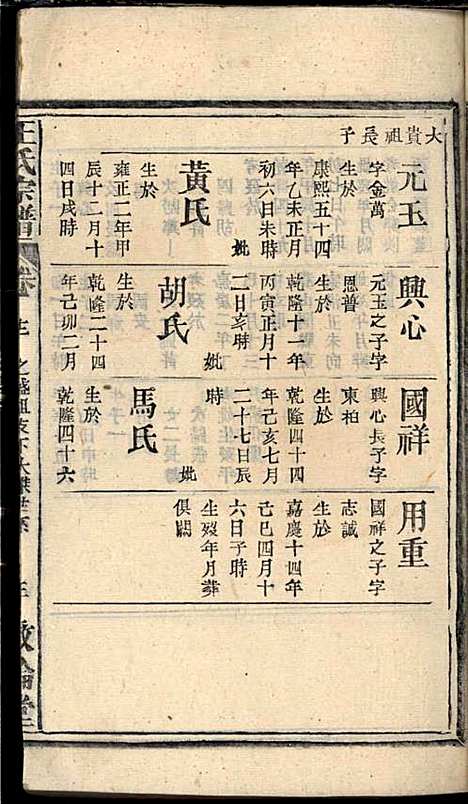 大貴祖長子
元玉
字金萬
生於
康熙五十四
年乙未正月
初六日未時
妣
黃氏
生於
雍正二年甲
辰十二月十
四日戌時
興心
元玉之子字
恩普
生於
乾隆十一年
丙寅正月十
二日亥時
妣
胡氏
生於
乾隆二十四
年己卯二月
時
國祥
興心長子字
東柏
生於
乾隆四十四
年己亥七月
二十七日辰
時
妣
馬氏
生於
乾隆四十六
用重
國祥之子字
志誠
生於
嘉慶十四年
己巳四月十
六日子時
生歿年月葬
俱闕
王氏宗譜
卷